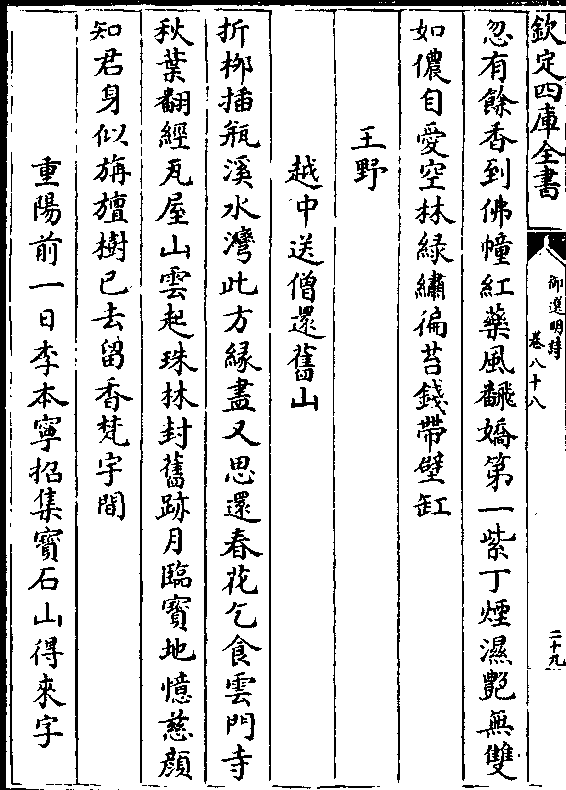 欽定四庫全書
御選明詩
卷八十八
二十九
忽有餘香到佛幢紅藥風飜嬌第一紫丁煙濕艷無雙
如儂自愛空林緑繡徧苔錢帶壁缸
王野
越中送僧還舊山
折栁插瓶溪水灣此方縁盡又思還春花乞食雲門寺
秋葉翻經瓦屋山雲起珠林封舊跡月臨寳地憶慈顔
知君身似旃檀樹已去留香梵宇間
重陽前一日李本寧招集寳石山得來字